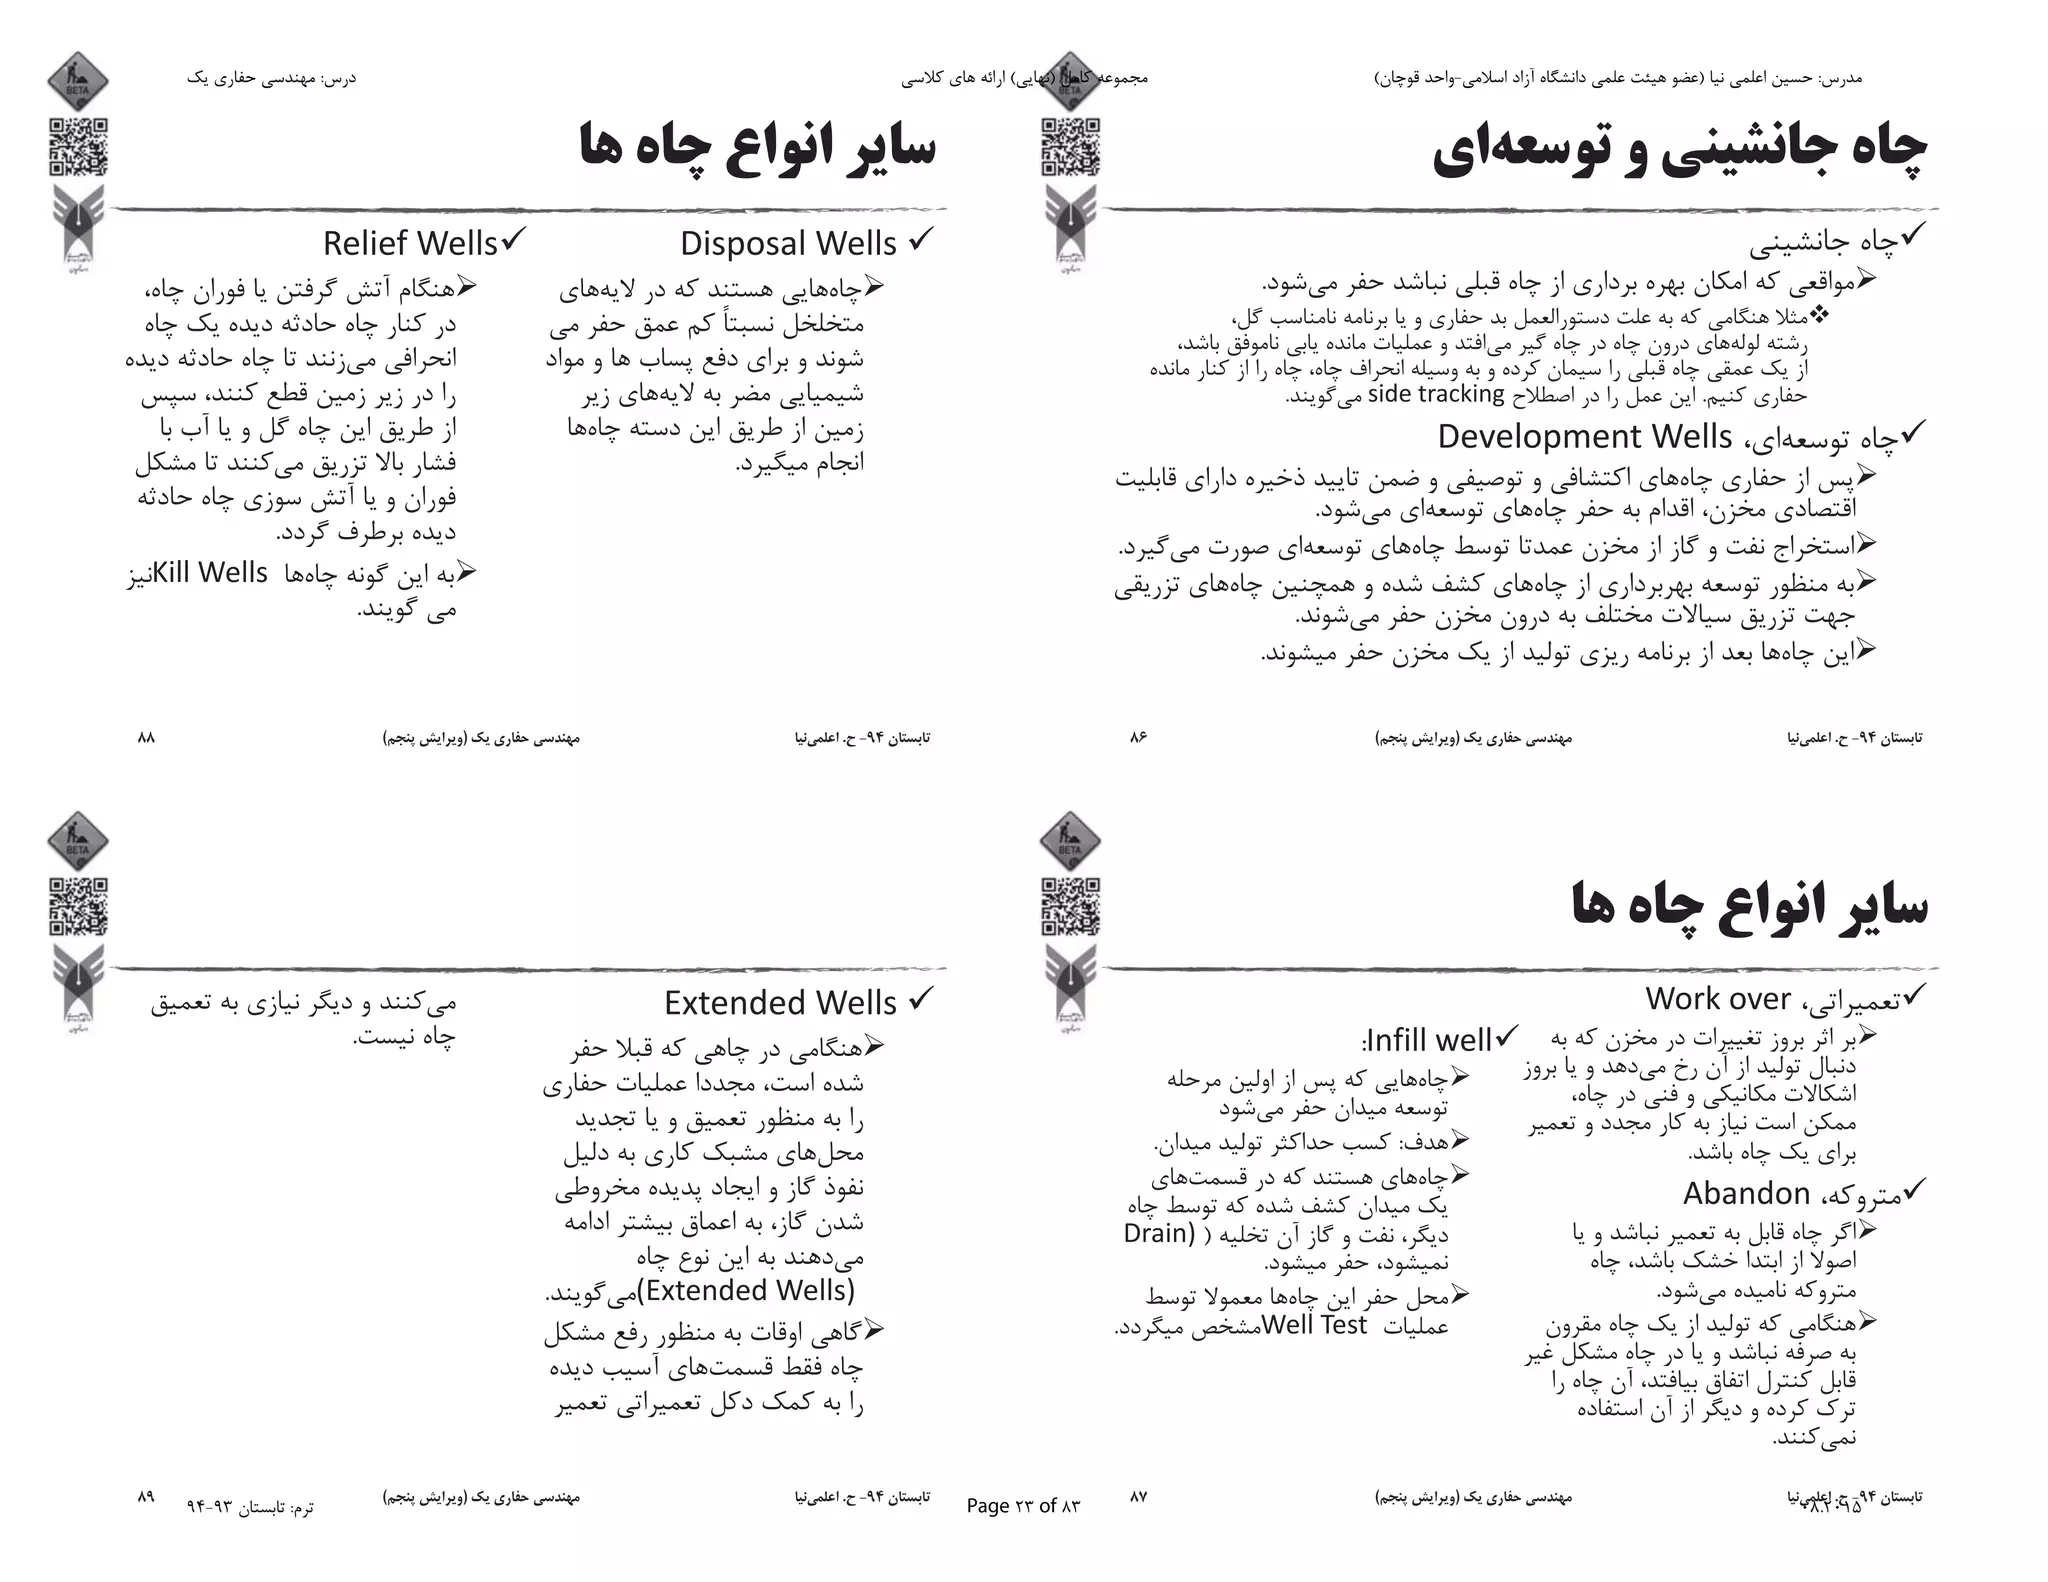 مدرس: حسین اعلمی نیا (عضو هیئت علمی دانشگاه آزاد اسلامی-واحد قوچان)
مجموعه کامل (نهایی) ارائه های کلاسی
درس: مهندسی حفاری یک
BETA
چاه جانشینی و توسعه‌ای
چاه جانشینی
مواقعی که امکان بهره برداری از چاه قبلی نباشد حفر می‌شود.
مثلا هنگامی که به علت دستورالعمل بد حفاری و یا برنامه نامناسب گل،
رشته لوله‌های درون چاه در چاه گیر می‌افتد و عملیات مانده یابی ناموفق باشد،
از یک عمقی چاه قبلی را سیمان کرده و به وسیله انحراف چاه، چاه را از کنار مانده
حفاری کنیم. این عمل را در اصطلاح side tracking می‌گویند.
چاه توسعه‌ای، Development Wells
پس از حفاری چاه‌های اکتشافی و توصیفی و ضمن تایید ذخیره دارای قابلیت
اقتصادی مخزن، اقدام به حفر چاه‌های توسعه‌ای می‌شود.
استخراج نفت و گاز از مخزن عمدتا توسط چاه‌های توسعه‌ای صورت می‌گیرد.
به منظور توسعه بهربرداری از چاه‌های کشف شده و همچنین چاه‌های تزریقی
جهت تزریق سیالات مختلف به درون مخزن حفر می‌شوند.
این چاه‌ها بعد از برنامه ریزی تولید از یک مخزن حفر میشوند.
تابستان ۹۴- ح. اعلمی‌نیا
مهندسی حفاری یک (ویرایش پنجم)
۸۶
BETA
سایر انواع چاه ها
Disposal Wells
چاه‌هایی هستند که در لایه‌های
متخلخل نسبتاً کم عمق حفر می
شوند و برای دفع پساب ها و مواد
شیمیایی مضر به لایه‌های زیر
زمین از طریق این دسته چاه‌ها
انجام میگیرد.
Relief Wells
هنگام آتش گرفتن یا فوران چاه،
در کنار چاه حادثه دیده یک چاه
انحرافی می‌زنند تا چاه حادثه دیده
را در زیر زمین قطع کنند، سپس
از طریق این چاه گل و یا آب با
فشار بالا تزریق می‌کنند تا مشکل
فوران و یا آتش سوزی چاه حادثه
دیده برطرف گردد.
به این گونه چاه‌ها Kill Wells نیز
می گویند.
تابستان ۹۴- ح. اعلمی‌نیا
مهندسی حفاری یک (ویرایش پنجم)
۸۸
BETA
سایر انواع چاه ها
تعمیراتی، Work over
بر اثر بروز تغییرات در مخزن که به
دنبال تولید از آن رخ می‌دهد و یا بروز
اشکالات مکانیکی و فنی در چاه،
ممکن است نیاز به کار مجدد و تعمیر
برای یک چاه باشد.
متروکه، Abandon
اگر چاه قابل به تعمیر نباشد و یا
اصولا از ابتدا خشک باشد، چاه
متروکه نامیده می‌شود.
هنگامی که تولید از یک چاه مقرون
به صرفه نباشد و یا در چاه مشکل غیر
قابل کنترل اتفاق بیافتد، آن چاه را
ترک کرده و دیگر از آن استفاده
نمی‌کنند.
Infill well:
چاه‌هایی که پس از اولین مرحله
توسعه میدان حفر می‌شود
هدف: کسب حداکثر تولید میدان.
چاه‌های هستند که در قسمت‌های
یک میدان کشف شده که توسط چاه
دیگر، نفت و گاز آن تخلیه ( Drain)
نمیشود، حفر میشود.
محل حفر این چاه‌ها معمولا توسط
عملیات Well Test مشخص میگردد.
تابستان ۹۴- ح. اعلمی‌نیا
مهندسی حفاری یک (ویرایش پنجم)
۸۷
BETA
Extended Wells
هنگامی در چاهی که قبلا حفر
شده است، مجددا عملیات حفاری
را به منظور تعمیق و یا تجدید
محل‌های مشبک کاری به دلیل
نفوذ گاز و ایجاد پدیده مخروطی
شدن گاز، به اعماق بیشتر ادامه
می‌دهند به این نوع چاه
(Extended Wells)می‌گویند.
گاهی اوقات به منظور رفع مشکل
چاه فقط قسمت‌های آسیب دیده
را به کمک دکل تعمیراتی تعمیر
می‌کنند و دیگر نیازی به تعمیق
چاه نیست.
تابستان ۹۴- ح. اعلمی‌نیا
مهندسی حفاری یک (ویرایش پنجم)
۸۹
Page ۲۳ of ۸۳
ترم: تابستان ۹۳-۹۴